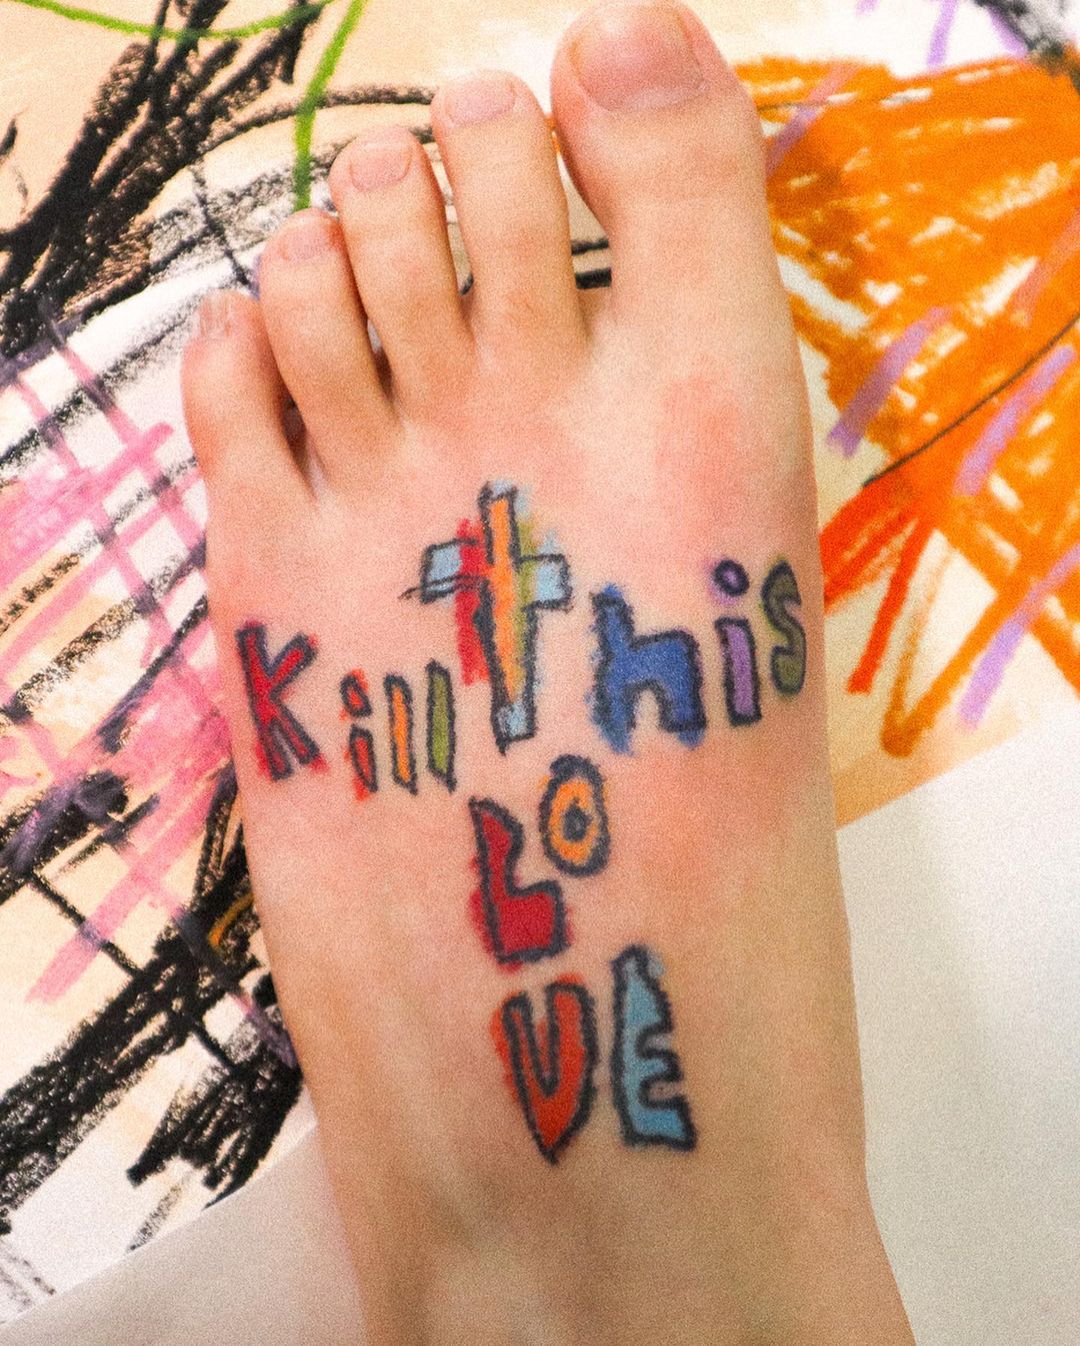 Kill This
LO
VE